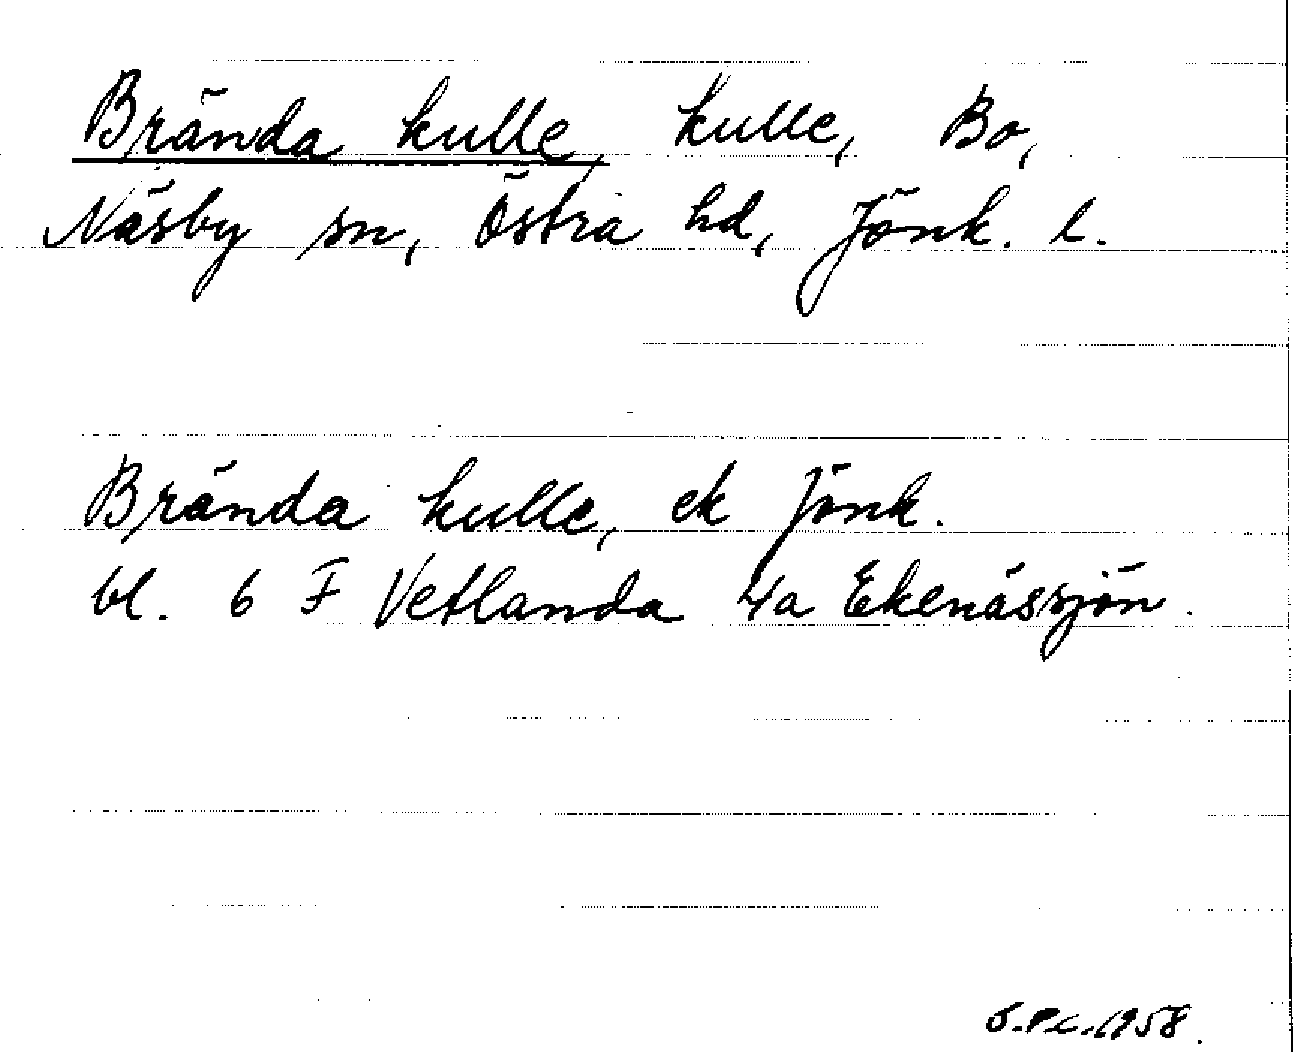 Brända kulle, kulle, Bo,
Näsby sn, Östra hd, Jönk. l.
Brända kulle, ek Jönk.
bl. 6 F Vetlanda 4a Ekenässjön.
Ö.P.C. 1958.